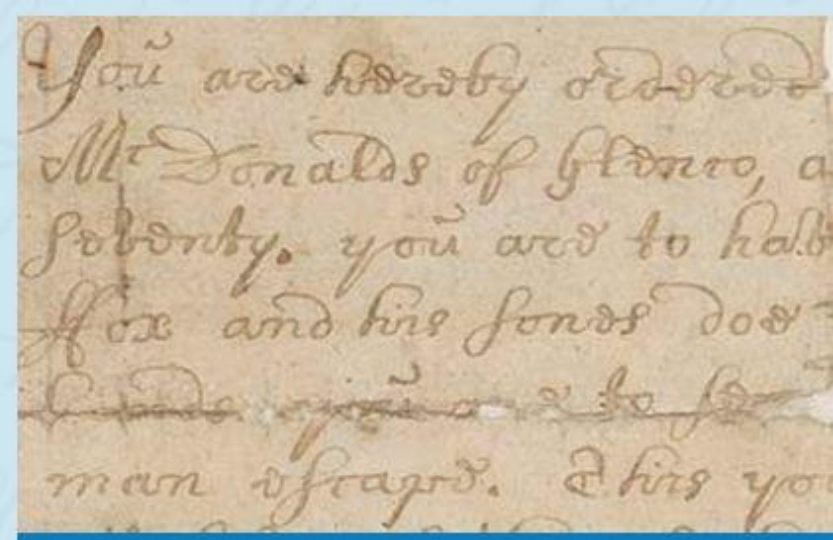 You are hereby ordered
McDonalds of Glenco, a
Seventy. you are to have
ffox and his sones doe
hands you are to se
man escape. This you